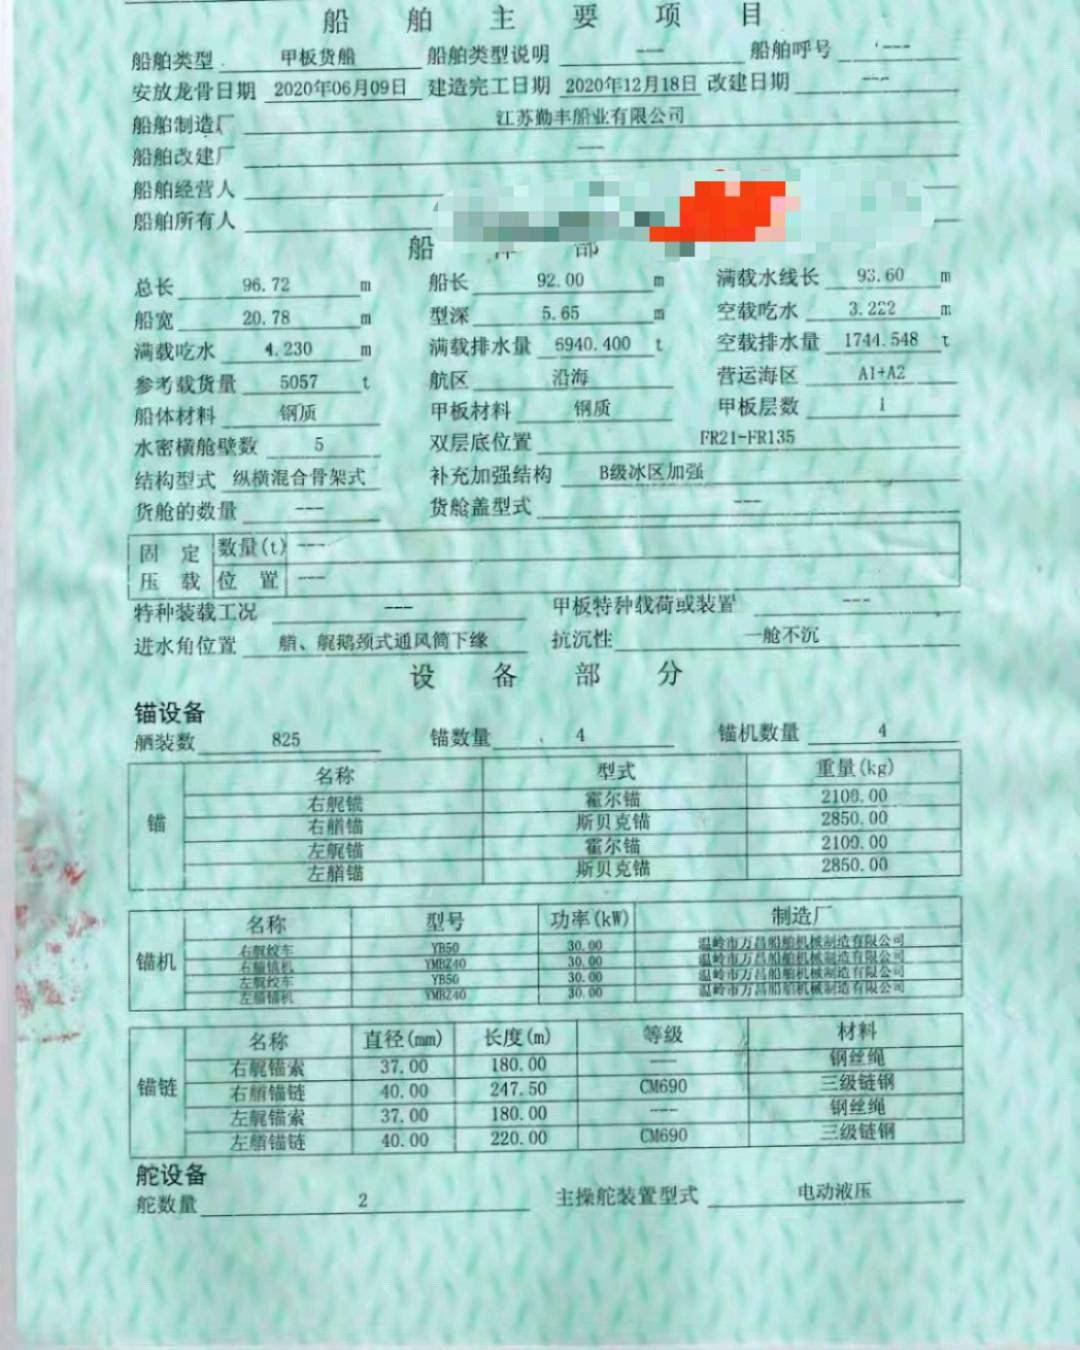 船舶主要项目
船舶类型 甲板货船 船舶类型说明 --- 船舶呼号 ---
安放龙骨日期 2020年06月09日 建造完工日期 2020年12月18日 改建日期 ---
船舶制造厂 江苏勤丰船业有限公司
船舶改建厂 ---
船舶经营人
船舶所有人
船 部
总长 96.72 m 船长 92.00 m 满载水线长 93.60 m
船宽 20.78 m 型深 5.65 m 空载吃水 3.222 m
满载吃水 4.230 m 满载排水量 6940.400 t 空载排水量 1744.548 t
参考载货量 5057 t 航区 沿海 营运海区 A1+A2
船体材料 钢质 甲板材料 钢质 甲板层数 1
水密横舱壁数 5 双层底位置 FR21-FR135
结构型式 纵横混合骨架式 补充加强结构 B级冰区加强
货舱的数量 --- 货舱盖型式 ---
固定压载 数量(t) ---
位置 ---
特种装载工况 --- 甲板特种载荷或装置 ---
进水角位置 艏、艉鹅颈式通风筒下缘 抗沉性 一舱不沉
设备部分
锚设备
舾装数 825 锚数量 4 锚机数量 4
锚 名称 型式 重量(kg)
右艉锚 霍尔锚 2100.00
右艏锚 斯贝克锚 2850.00
左艉锚 霍尔锚 2100.00
左艏锚 斯贝克锚 2850.00
锚机 名称 型号 功率(kW) 制造厂
右艉绞车 YB50 30.00 温岭市万昌船舶机械制造有限公司
右艏锚机 YMBZ40 30.00 温岭市万昌船舶机械制造有限公司
左艉绞车 YB50 30.00 温岭市万昌船舶机械制造有限公司
左艏锚机 YMBZ40 30.00 温岭市万昌船舶机械制造有限公司
锚链 名称 直径(mm) 长度(m) 等级 材料
右艉锚索 37.00 180.00 --- 钢丝绳
右艏锚链 40.00 247.50 CM690 三级链钢
左艉锚索 37.00 180.00 --- 钢丝绳
左艏锚链 40.00 220.00 CM690 三级链钢
舵设备
舵数量 2 主操舵装置型式 电动液压